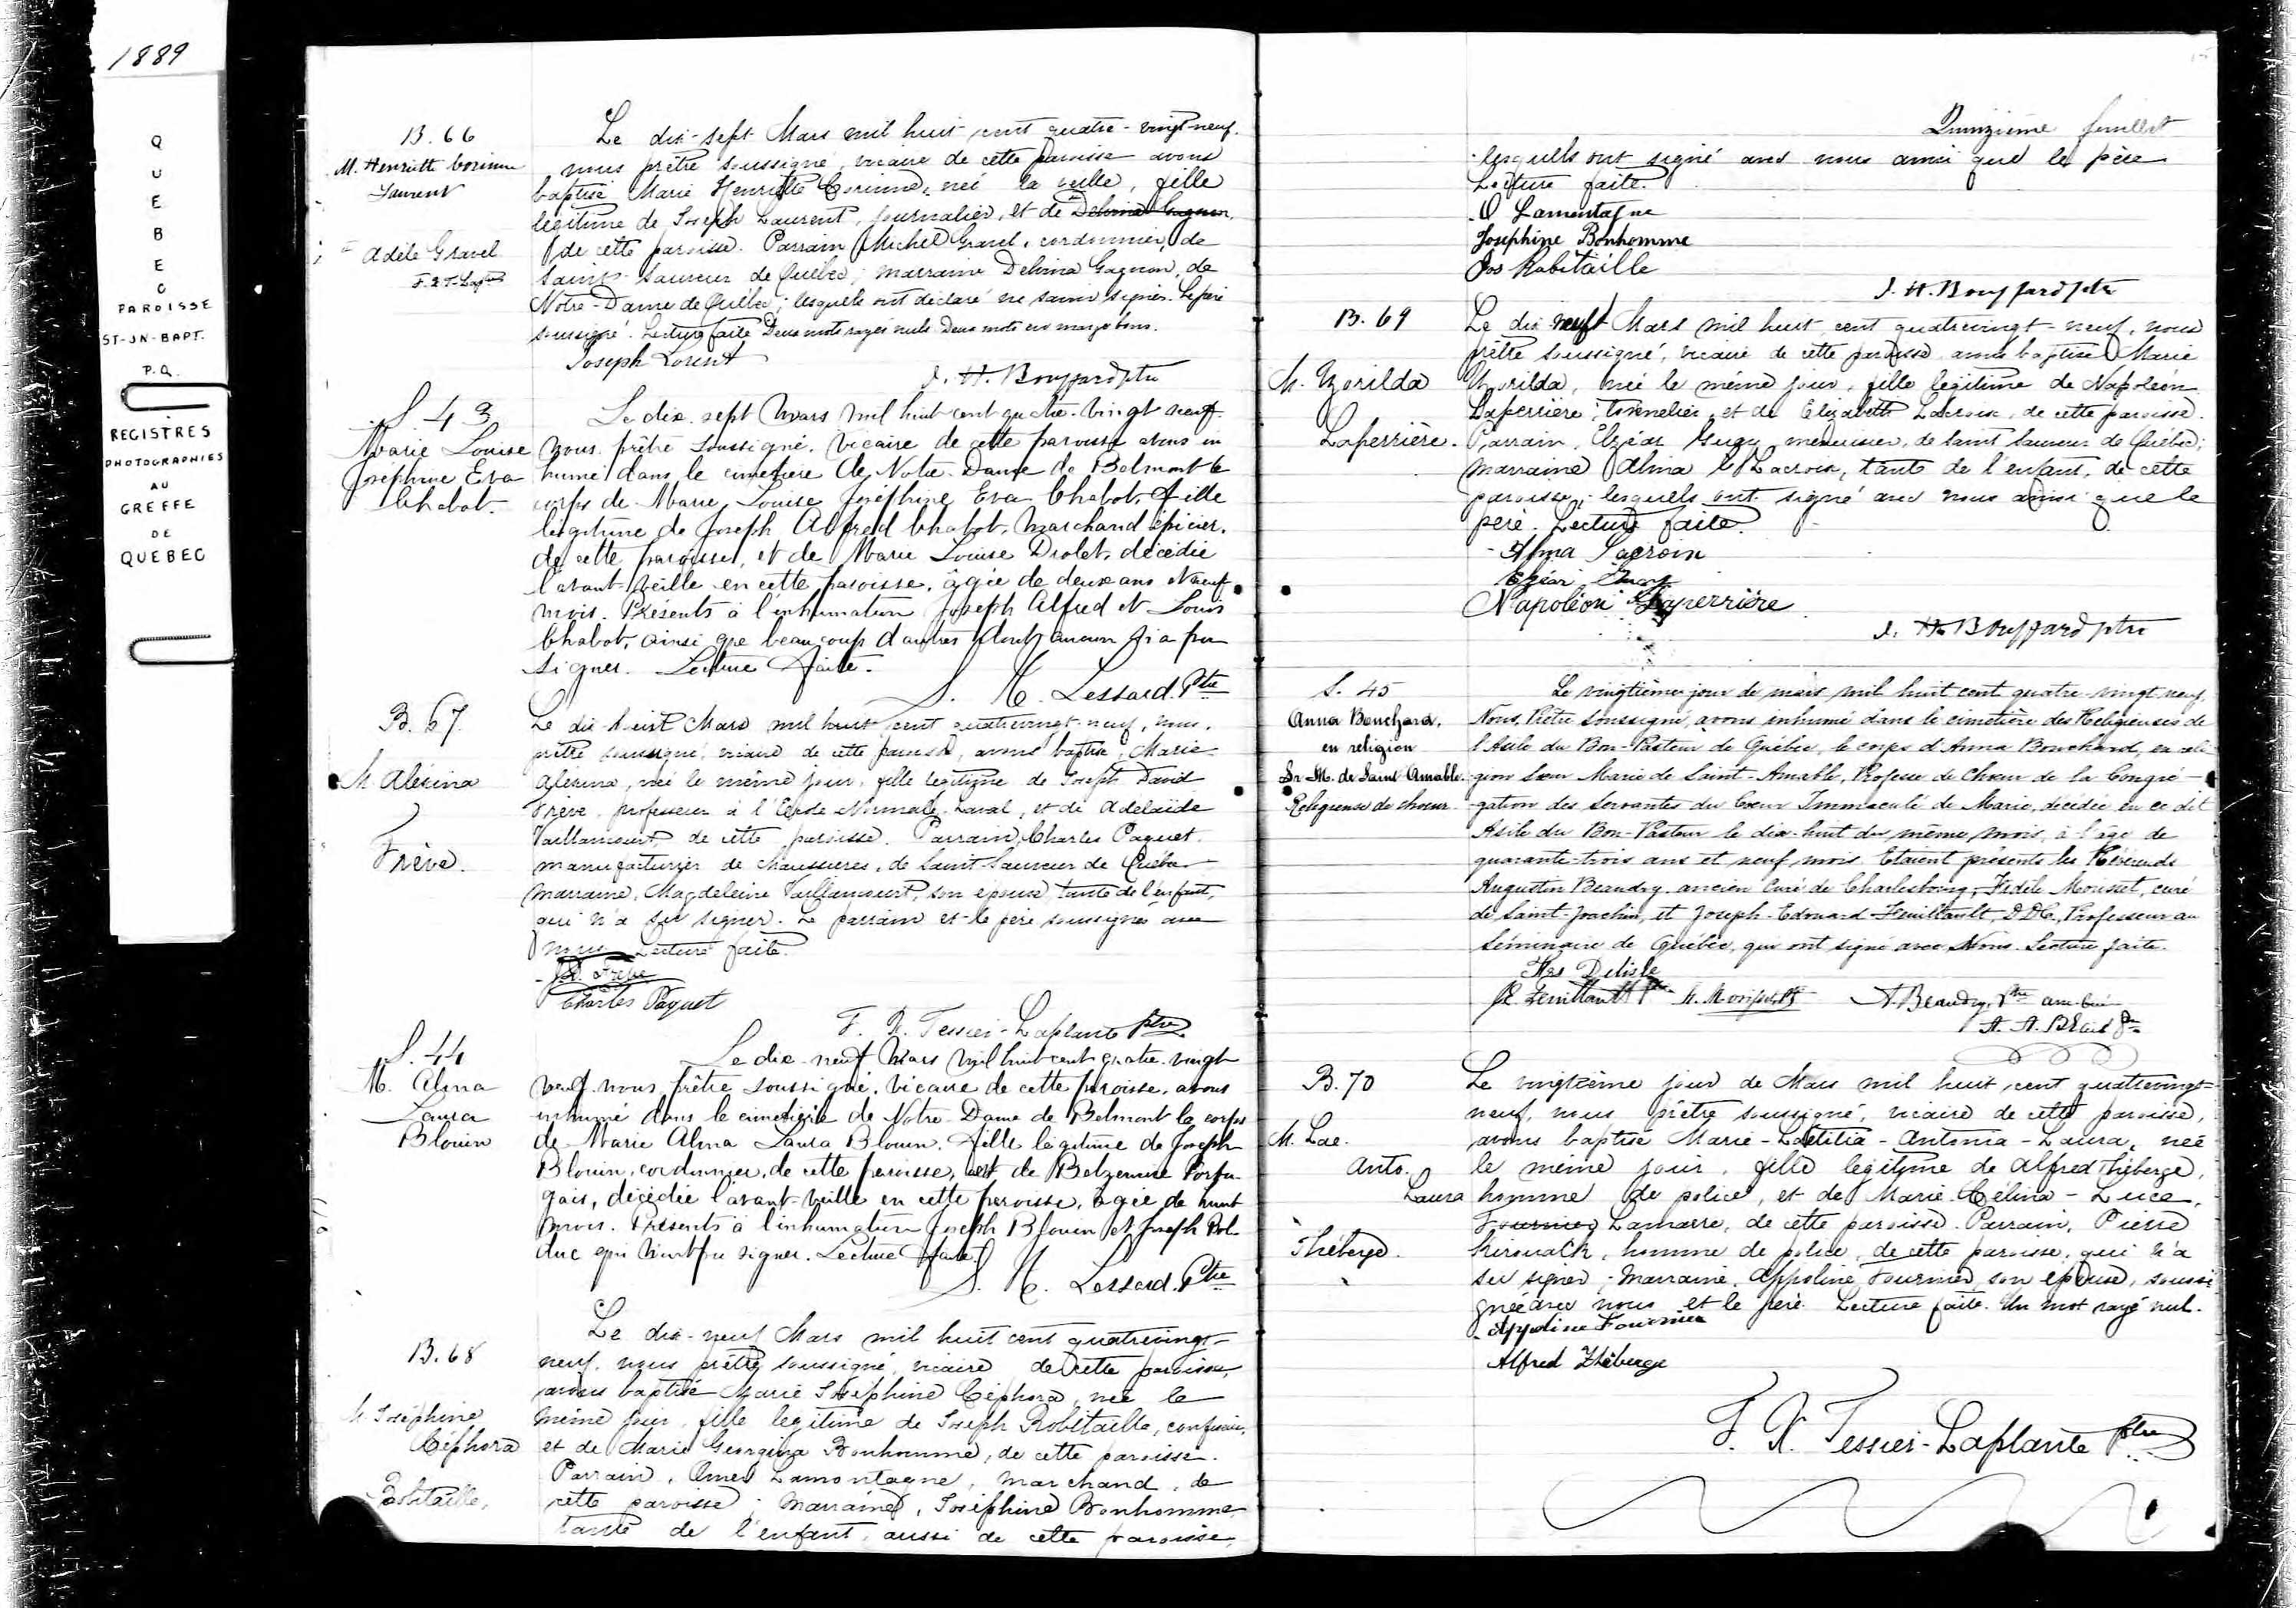 1889
QUEBEC
PAROISSE
ST-JN-BAPT.
P.Q.
REGISTRES
PHOTOGRAPHIES
AU
GREFFE
DE
QUEBEC
B. 66
M. Henriette Corinne
Laurent
Adèle Gravel
Le dix-sept Mars mil huit cent quatre-vingt neuf,
nous prêtre soussigné, vicaire de cette paroisse avons
baptisé Marie Henriette Corinne, née la veille, fille
légitime de Joseph Laurent, journalier, et de Delvina Gagnon,
de cette paroisse. Parrain Michel Gravel, cordonnier, de
Saint-Sauveur de Québec; marraine Delvina Gagnon, de
Notre-Dame de Québec; lesquels ont déclaré ne savoir signer. Le père
soussigné. Lecture faite Deux mots rayés nuls Deux mots en marge bons.
Joseph Lorent
J. H. Bouffard ptre
S. 43
Marie Louise
Joséphine Eva
Chabot.
Le dix sept Mars mil huit cent quatre-vingt neuf
nous prêtre soussigné, vicaire de cette paroisse avons in
humé dans le cimetière de Notre-Dame de Belmont le
corps de Marie Louise Joséphine Eva Chabot, fille
légitime de Joseph Alfred Chabot, marchand épicier,
de cette paroisse, et de Marie Louise Drolet, décédée
l'avant-veille en cette paroisse, âgée de deux ans et neuf
mois. Présents à l'inhumation Joseph Alfred et Louis
Chabot, ainsi que beaucoup d'autres dont aucun n'a pu
signer. Lecture faite.
Lessard. Ptre
B. 67
M. Aléxina
Frève.
Le dix-huit Mars mil huit cent quatrevingt-neuf, nous,
prêtre soussigné, vicaire de cette paroisse, avons baptisé, Marie
Aléxina, née le même jour, fille légitime de Joseph David
Frève, professeur à l'Ecole Normale Laval, et de Adelaïde
Vaillancourt, de cette paroisse. Parrain, Charles Paquet,
manufacturier de chaussures, de Saint-Sauveur de Québec
marraine, Magdeleine Vaillancourt, son épouse, tante de l'enfant,
qui n'a su signer. Le parrain et le père soussignés avec
nous. Lecture faite.
J.D. Frève
Charles Paquet
F. X. Tessier-Laplante ptre
S. 44
M. Alma
Laura
Blouin
Le dix-neuf Mars mil huit cent quatre-vingt
neuf nous prêtre soussigné, vicaire de cette paroisse, avons
inhumé dans le cimetière de Notre-Dame de Belmont le corps
de Marie Alma Laura Blouin, fille légitime de Joseph
Blouin, cordonnier, de cette paroisse, et de Belzemire Portu-
gais, décédée l'avant-veille en cette paroisse, âgée de huit
mois. Présents à l'inhumation Joseph Blouin et Joseph Bol
duc qui n'ont pu signer. Lecture faite.
Lessard. Ptre
B. 68
M. Joséphine
Céphora
Robitaille,
Le dix-neuf Mars mil huit cent quatrevingt-
neuf, nous prêtre soussigné, vicaire de cette paroisse,
avons baptisé Marie Joséphine Céphora, née le
même jour, fille légitime de Joseph Robitaille,
et de Marie Georgina Bonhomme, de cette paroisse.
Parrain, Omer Lamontagne, marchand, de
cette paroisse; marraine, Joséphine Bonhomme
tante de l'enfant, aussi de cette paroisse,
Quinzième feuillet
lesquels ont signé avec nous ainsi que le père
Lecture faite.
O Lamontagne
Joséphine Bonhomme
Jos Robitaille
J. H. Bouffard ptre
B. 69
M. Uzorilda
Laperrière.
Le dix neuf Mars mil huit cent quatrevingt-neuf, nous
prêtre soussigné, vicaire de cette paroisse avons baptisé Marie
Uzorilda, née le même jour, fille légitime de Napoléon
Laperrière, tonnelier, et de Elizabeth Lacroix, de cette paroisse.
Parrain, Elzéar Gugy, menuisier, de Saint Sauveur de Québec;
marraine Alma Lacroix, tante de l'enfant, de cette
paroisse; lesquels ont signé avec nous ainsi que le
père. Lecture faite.
Alma Lacroix
Elzéar Gugy
Napoléon Laperrière
J. H. Bouffard ptre
S. 45
Anna Bouchard,
en religion
Sr M. de Saint Amable.
Religieuse de choeur
Le vingtième jour de mars mil huit cent quatre-vingt neuf,
Nous, Prêtre soussigné, avons inhumé dans le cimetière des Religieuses de
l'Asile du Bon-Pasteur de Québec, le corps d'Anna Bouchard, en reli-
gion Soeur Marie de Saint-Amable, Professe de choeur de la Congré-
gation des Servantes du Coeur Immaculé de Marie, décédée en ce dit
Asile du Bon-Pasteur le dix-huit du même mois, à l'âge de
quarante-trois ans et neuf mois. Etaient présents les Révérends
Augustin Beaudry, ancien Curé de Charlesbourg, Fidèle Morisset, curé
de Saint-Joachim, et Joseph-Edouard Feuiltault, D.D.C., Professeur au
Séminaire de Québec, qui ont signé avec Nous. Lecture faite.
Delisle
J.E. Feuiltault Ptre F. Morisset Ptre A. Beaudry, Ptre anc. curé
A. A. Blais Ptre
B. 70
M. Lae.
Anto.
Laura
Théberge.
Le vingtième jour de Mars mil huit cent quatrevingt-
neuf, nous prêtre soussigné, vicaire de cette paroisse,
avons baptisé Marie-Laëtitia-Antonia-Laura, née
le même jour, fille légitime de Alfred Théberge,
homme de police, et de Marie-Célina-Luce,
Fournier Lamarre, de cette paroisse. Parrain, Pierre
Kirouack, homme de police, de cette paroisse, qui n'a
su signer; Marraine, Appoline Fournier, son épouse, soussi
gnée avec nous et le père. Lecture faite. Un mot rayé nul.
Appoline Fournier
Alfred Théberge
F. X. Tessier-Laplante Ptre